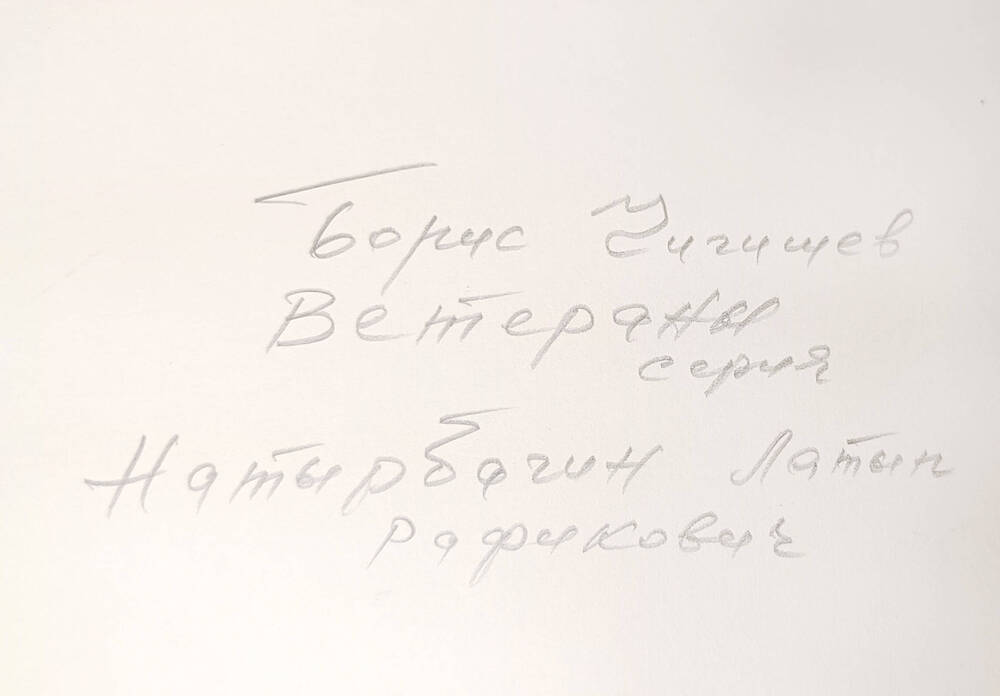 Борис Чигишев
Ветераны
серия
Натырбагин Латып
Рафикович